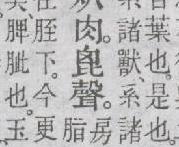 葉也。是也。
諸獸。系諸
肉。𣬉聲。房
脂
胵下。今更
脾肶也。玉